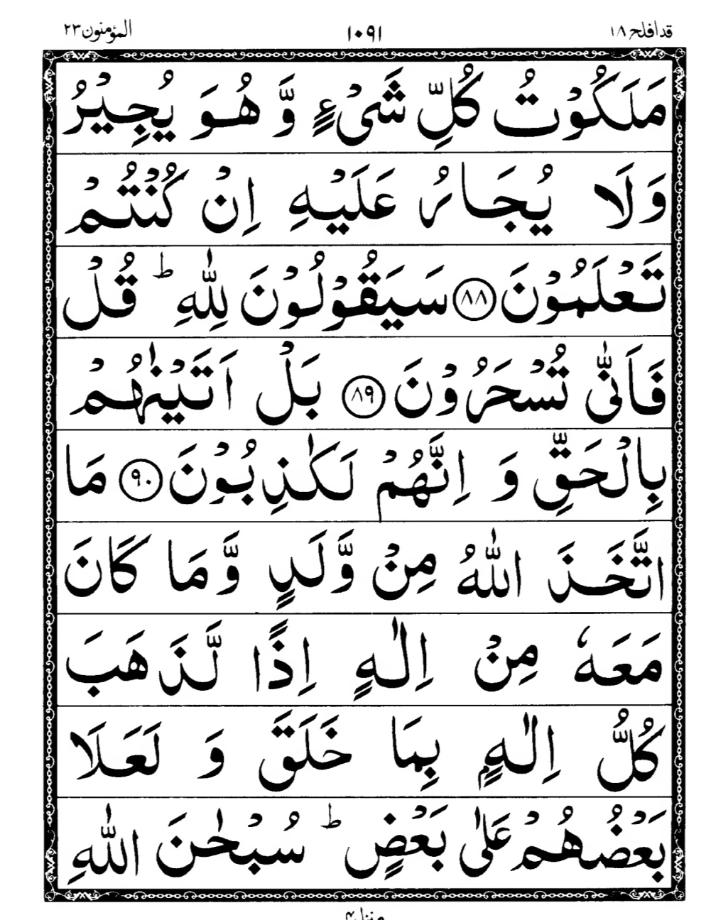 قد افلح ١٨ ١٠٩١ المؤمنون ٢٣
مَلَكُوْتُ كُلِّ شَیْءٍ وَّ هُوَ یُجِیْرُ
وَلَا یُجَارُ عَلَیْهِ اِنْ كُنْتُمْ
تَعْلَمُوْنَ ۝٨٨ سَیَقُوْلُوْنَ لِلّٰهِ ؕ قُلْ
فَاَنّٰی تُسْحَرُوْنَ ۝٨٩ بَلْ اَتَیْنٰهُمْ
بِالْحَقِّ وَ اِنَّهُمْ لَكٰذِبُوْنَ ۝٩٠ مَا
اتَّخَذَ اللّٰهُ مِنْ وَّلَدٍ وَّمَا كَانَ
مَعَهٗ مِنْ اِلٰهٍ اِذًا لَّذَهَبَ
كُلُّ اِلٰهٍۭ بِمَا خَلَقَ وَ لَعَلَا
بَعْضُهُمْ عَلٰی بَعْضٍ ؕ سُبْحٰنَ اللّٰهِ
منزل ٤